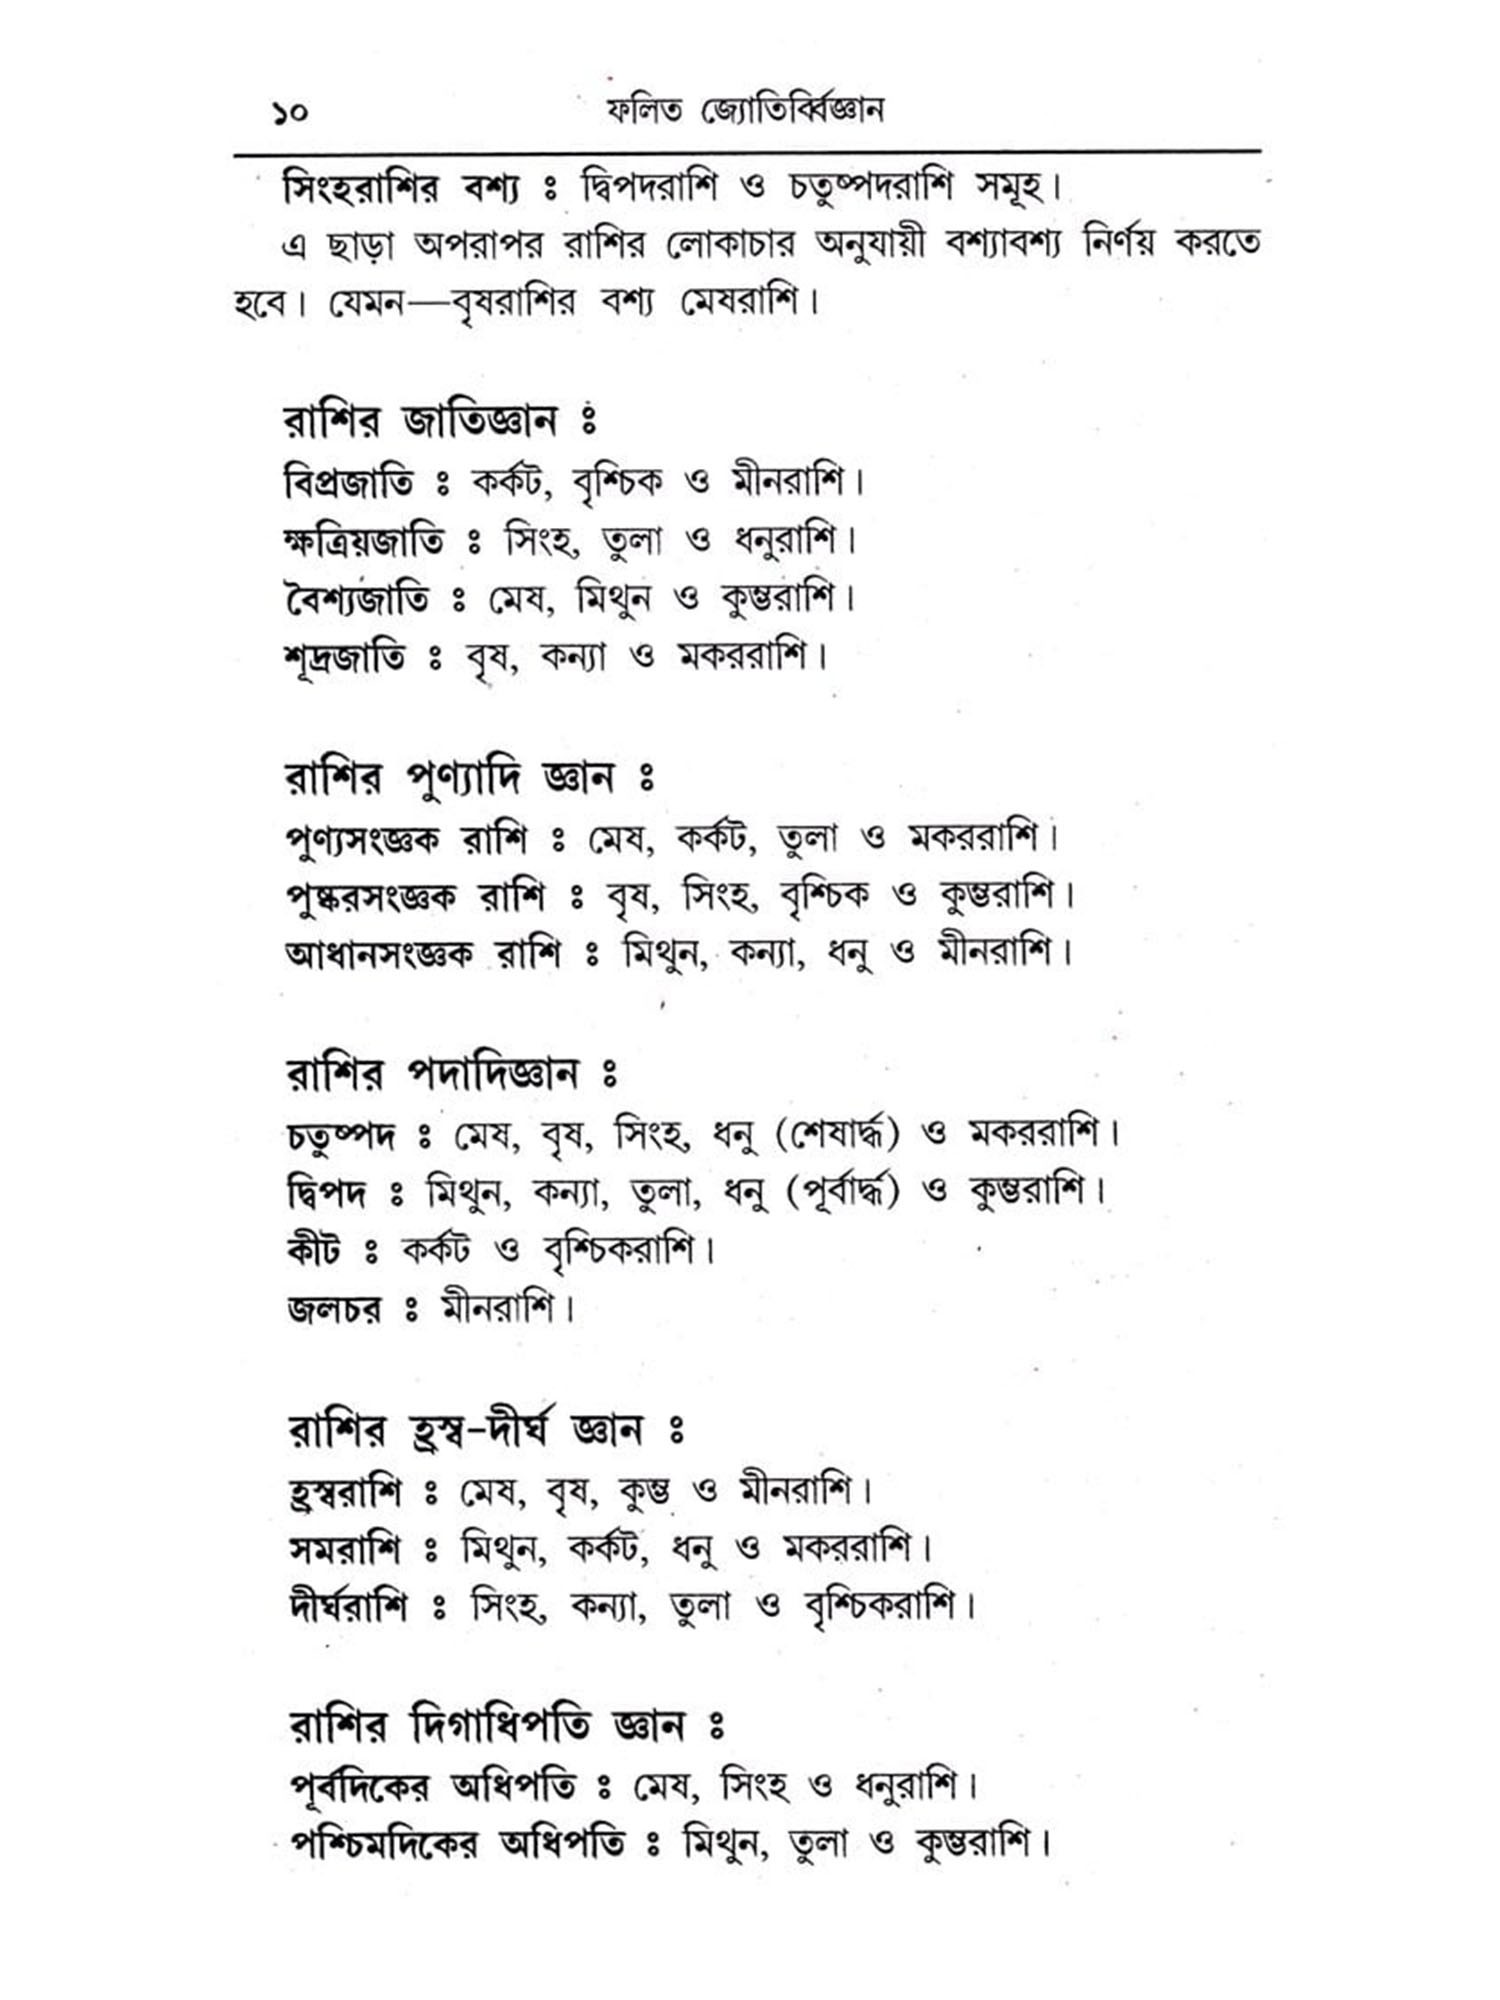 ১০ ফলিত জ্যোতির্ব্বিজ্ঞান
সিংহরাশির বশ্য ঃ দ্বিপদরাশি ও চতুষ্পদরাশি সমূহ।
এ ছাড়া অপরাপর রাশির লোকাচার অনুযায়ী বশ্যাবশ্য নির্ণয় করতে
হবে। যেমন—বৃষরাশির বশ্য মেষরাশি।
রাশির জাতিজ্ঞান ঃ
বিপ্রজাতি ঃ কর্কট, বৃশ্চিক ও মীনরাশি।
ক্ষত্রিয়জাতি ঃ সিংহ, তুলা ও ধনুরাশি।
বৈশ্যজাতি ঃ মেষ, মিথুন ও কুম্ভরাশি।
শূদ্রজাতি ঃ বৃষ, কন্যা ও মকররাশি।
রাশির পুণ্যাদি জ্ঞান ঃ
পুণ্যসংজ্ঞক রাশি ঃ মেষ, কর্কট, তুলা ও মকররাশি।
পুষ্করসংজ্ঞক রাশি ঃ বৃষ, সিংহ, বৃশ্চিক ও কুম্ভরাশি।
আধানসংজ্ঞক রাশি ঃ মিথুন, কন্যা, ধনু ও মীনরাশি।
রাশির পদাদিজ্ঞান ঃ
চতুষ্পদ ঃ মেষ, বৃষ, সিংহ, ধনু (শেষার্দ্ধ) ও মকররাশি।
দ্বিপদ ঃ মিথুন, কন্যা, তুলা, ধনু (পূর্বার্দ্ধ) ও কুম্ভরাশি।
কীট ঃ কর্কট ও বৃশ্চিকরাশি।
জলচর ঃ মীনরাশি।
রাশির হ্রস্ব-দীর্ঘ জ্ঞান ঃ
হ্রস্বরাশি ঃ মেষ, বৃষ, কুম্ভ ও মীনরাশি।
সমরাশি ঃ মিথুন, কর্কট, ধনু ও মকররাশি।
দীর্ঘরাশি ঃ সিংহ, কন্যা, তুলা ও বৃশ্চিকরাশি।
রাশির দিগাধিপতি জ্ঞান ঃ
পূর্বদিকের অধিপতি ঃ মেষ, সিংহ ও ধনুরাশি।
পশ্চিমদিকের অধিপতি ঃ মিথুন, তুলা ও কুম্ভরাশি।